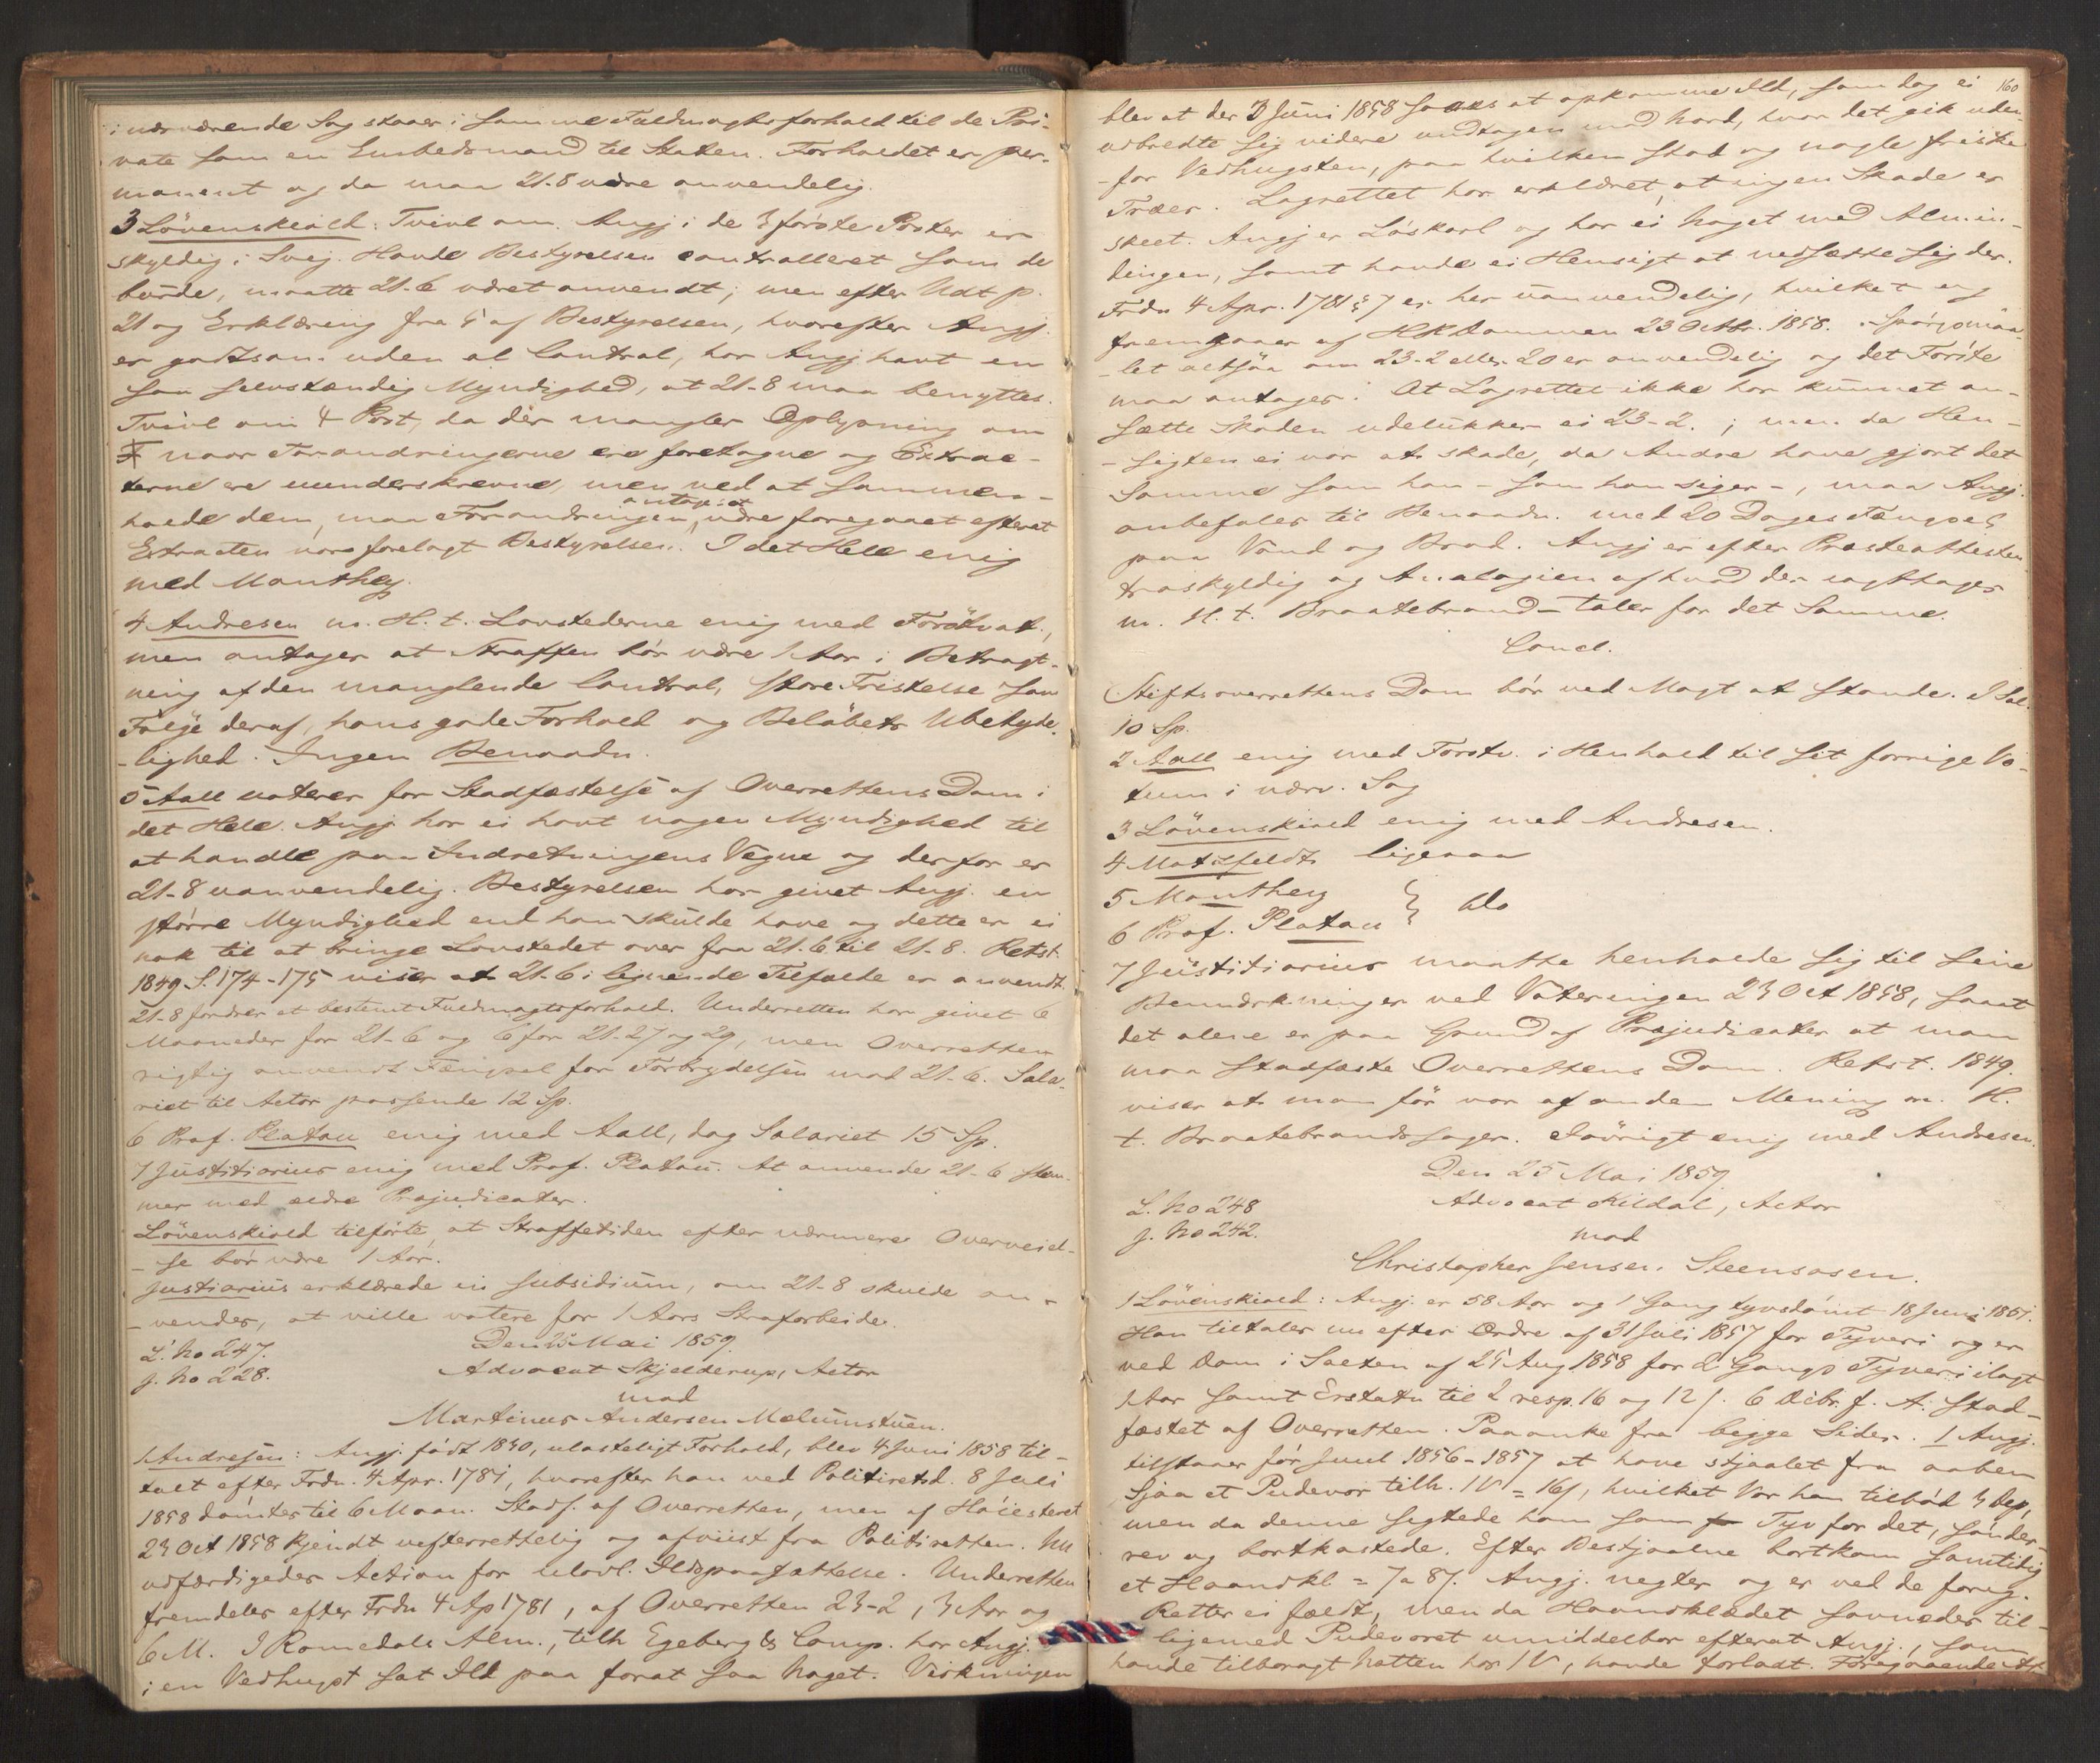 i nærværende Sag staaer i samme Fuldmagtsforhold til de Pri-
vate som en Embedsmand til Staten. Forholdet er per-
manent og da maa 21-8 være anvendelig.
3 Lövenskiold: Tvivl om Angj. i de 3 förste Poster er
skyldig i Svig. Havde Bestyrelsen controlleret som de
burde, maatte 21-6 været anvendt; men efter Udt p.
21 og Erklæring fra 5 af Bestyrelsen, hvorefter Angj.
er godtsom uden al Control, har Angj havt en
saa selvstændig Myndighed, at 21-8 maa benyttes.
Tvivl om 4 Post, da der mangler Oplysning om
naar Forandringerne ere foretagne og Extrac-
terne ere underskrevne, men ved at sammen-
holde dem, maa Forandringen antag. at være foregaaet efterat
Extracten var forelagt Bestyrelsen. I det Hele enig
med Manthey.
4 Andresen m. H. t. Lovstederne enig med Förstvot.,
men antager at Straffen bör være 1 Aar i Betragt-
ning af den manglende Control, store Fristelse som
Fölge deraf, hans gode Forhold og Belöbets Ubetyde-
lighed. Ingen Benaadn.
5 Aall voterer for Stadfæstelse af Overrettens Dom i
det Hele. Angj. har ei havt nogen Myndighed til
at handle paa Indretningens Vegne og derfor er
21-8 uanvendelig. Bestyrelsen har givet Angj. en
större Myndighed end han skulde have og dette er ei
nok til at bringe Lovstedet over fra 21-6 til 21-8. Retst.
1849 S. 174-175 viser at 21-6 i lignende Tilfælde er anvendt.
21-8 fordrer et bestemt Fuldmagtsforhold. Underretten har givet 6
Maaneder for 21-6 og 6 for 21-27 og 29, men Overretten
rigtig anvendt Fængsel for Forbrydelsen mod 21-6. Sala-
riet til Actor passende 12 Sp.
6 Prof. Platou enig med Aall, dog Salariet 15 Sp.
7 Justitiarius enig med Prof. Platou. At anvende 21-6 stem-
mer med ældre Præjudicater.
Lövenskiold tilförte, at Straffetiden efter nærmere Overveiel-
se bör være 1 Aar.
Justiarius erklærede in subsidium, om 21-8 skulde an-
vendes, at ville votere for 1 Aars Strafarbeide.
Den 25 Mai 1859.
L. No 247.
J. No 228.
Advocat Skjelderup, Actor
mod
Martinus Andersen Mælumstuen.
1 Andresen: Angj. födt 1830, ulasteligt Forhold, blev 4 Juni 1858 til-
talt efter Frdn. 4 Apr. 1781, hvorefter han ved Politiretsd. 8 Juli
1858 dömtes til 6 Maan. Stadf. af Overretten, men af Höiesteret
23 Oct 1858 kjendt uefterrettelig og afviist fra Politiretten. Nu
udfærdigedes Action for ulovl. Ildspaasættelse. Underretten
fremdeles efter Frdn 4 Ap 1781, af Overretten 23-2, 3 Aar og
6 M. I Romedals Alm., tilh Egeberg & Comp. har Angj.
i en Vedhugst sat Ild paa forat saa Noget. Virkningen
160
blev at der 3 Juni 1858 saaes at opkomme Ild, som dog ei
udbredte sig videre undtagen mod Nord, hvor det gik uden-
for Vedhugsten, paa hvilken stod og nogle friske
Træer. Lagrettet har erklæret at ingen Skade er
skeet. Angj er Löskarl og har ei Noget med Almin-
dingen, samt havde ei Hensigt at nedsætte sig der.
Frdn 4 Apr. 1781 § 7 er her uanvendelig, hvilket og
fremgaaer af HRdommen 23 Octbr. 1858. Spörgsmaa-
let altsaa om 23-2 eller 20 er anvendelig og det Förste
maa antages. At Lagrettet ikke har kunnet an-
sætte Skaden udelukker ei 23-2.; men da Hen-
sigten ei var at skade, da Andre have gjort det
Samme som han - som han siger -, maa Angj.
anbefales til Benaadn. med 20 Dages Fængsel
paa Vand og Bröd. Angj er efter Præsteattesten
troskyldig og Analogien af hvad der iagttages
m. H. t. Braatebrand - taler for det Samme.
Concl.
Stiftsoverrettens Dom bör ved Magt at stande. I Sal.
10 Sp.
2 Aall enig med Förstv. i Henhold til sit forrige Vo-
tum i nærv. Sag
3 Lövenskiold enig med Andresen.
4 Motzfeldt ligesaa
5 Manthey
6 Prof. Platou } do
7 Justitiarius maatte henholde sig til sine
Bemærkninger ved Voteringen 23 Oct 1858, saaat
det alene er paa Grund af Præjudicater at man
maa stadfæste Overrettens Dom. Retst. 1849
viser at man för var af anden Mening m. H.
t. Braatebrandssager. Iövrigt enig med Andresen.
Den 25 Mai 1859
L. No 248
J. No 242.
Advocat Kildal, Actor
mod
Christopher Jensen Steensaasen.
1 Lövenskiold: Angj. er 58 Aar og 1 Gang tyvsdömt 18 Juni 1851.
Han tiltales nu efter Ordre af 31 Juli 1857 for Tyveri og er
ved Dom i Saken af 25 Aug 1858 for 2 Gangs Tyveri ilagt
1 Aar samt Erstatn til 2 resp. 16 og 12 s. 6 Decbr. f. A. stad-
fæstet af Overretten. Paaanke fra begge Sider. 1 Angj.
tilstaaer för Juul 1856-1857 at have stjaalet fra aaben
Sjaa et Pudevor tilh. IV = 16 s, hvilket Vor han tilböd 3 Dep,
men da denne sigtede ham som Tyv for det, sönder-
rev og bortkastede. Efter Bestjaalne bortkom samtidig
et Haandkl = 7 a 8 s. Angj. negter og er ved de foreg.
Retter ei fældt, men da Haandklædet savnedes til-
ligemed Pudevoret umiddelbar efterat Angj., som
havde tilbragt Natten hos IV, havde forladt. Foregaaende